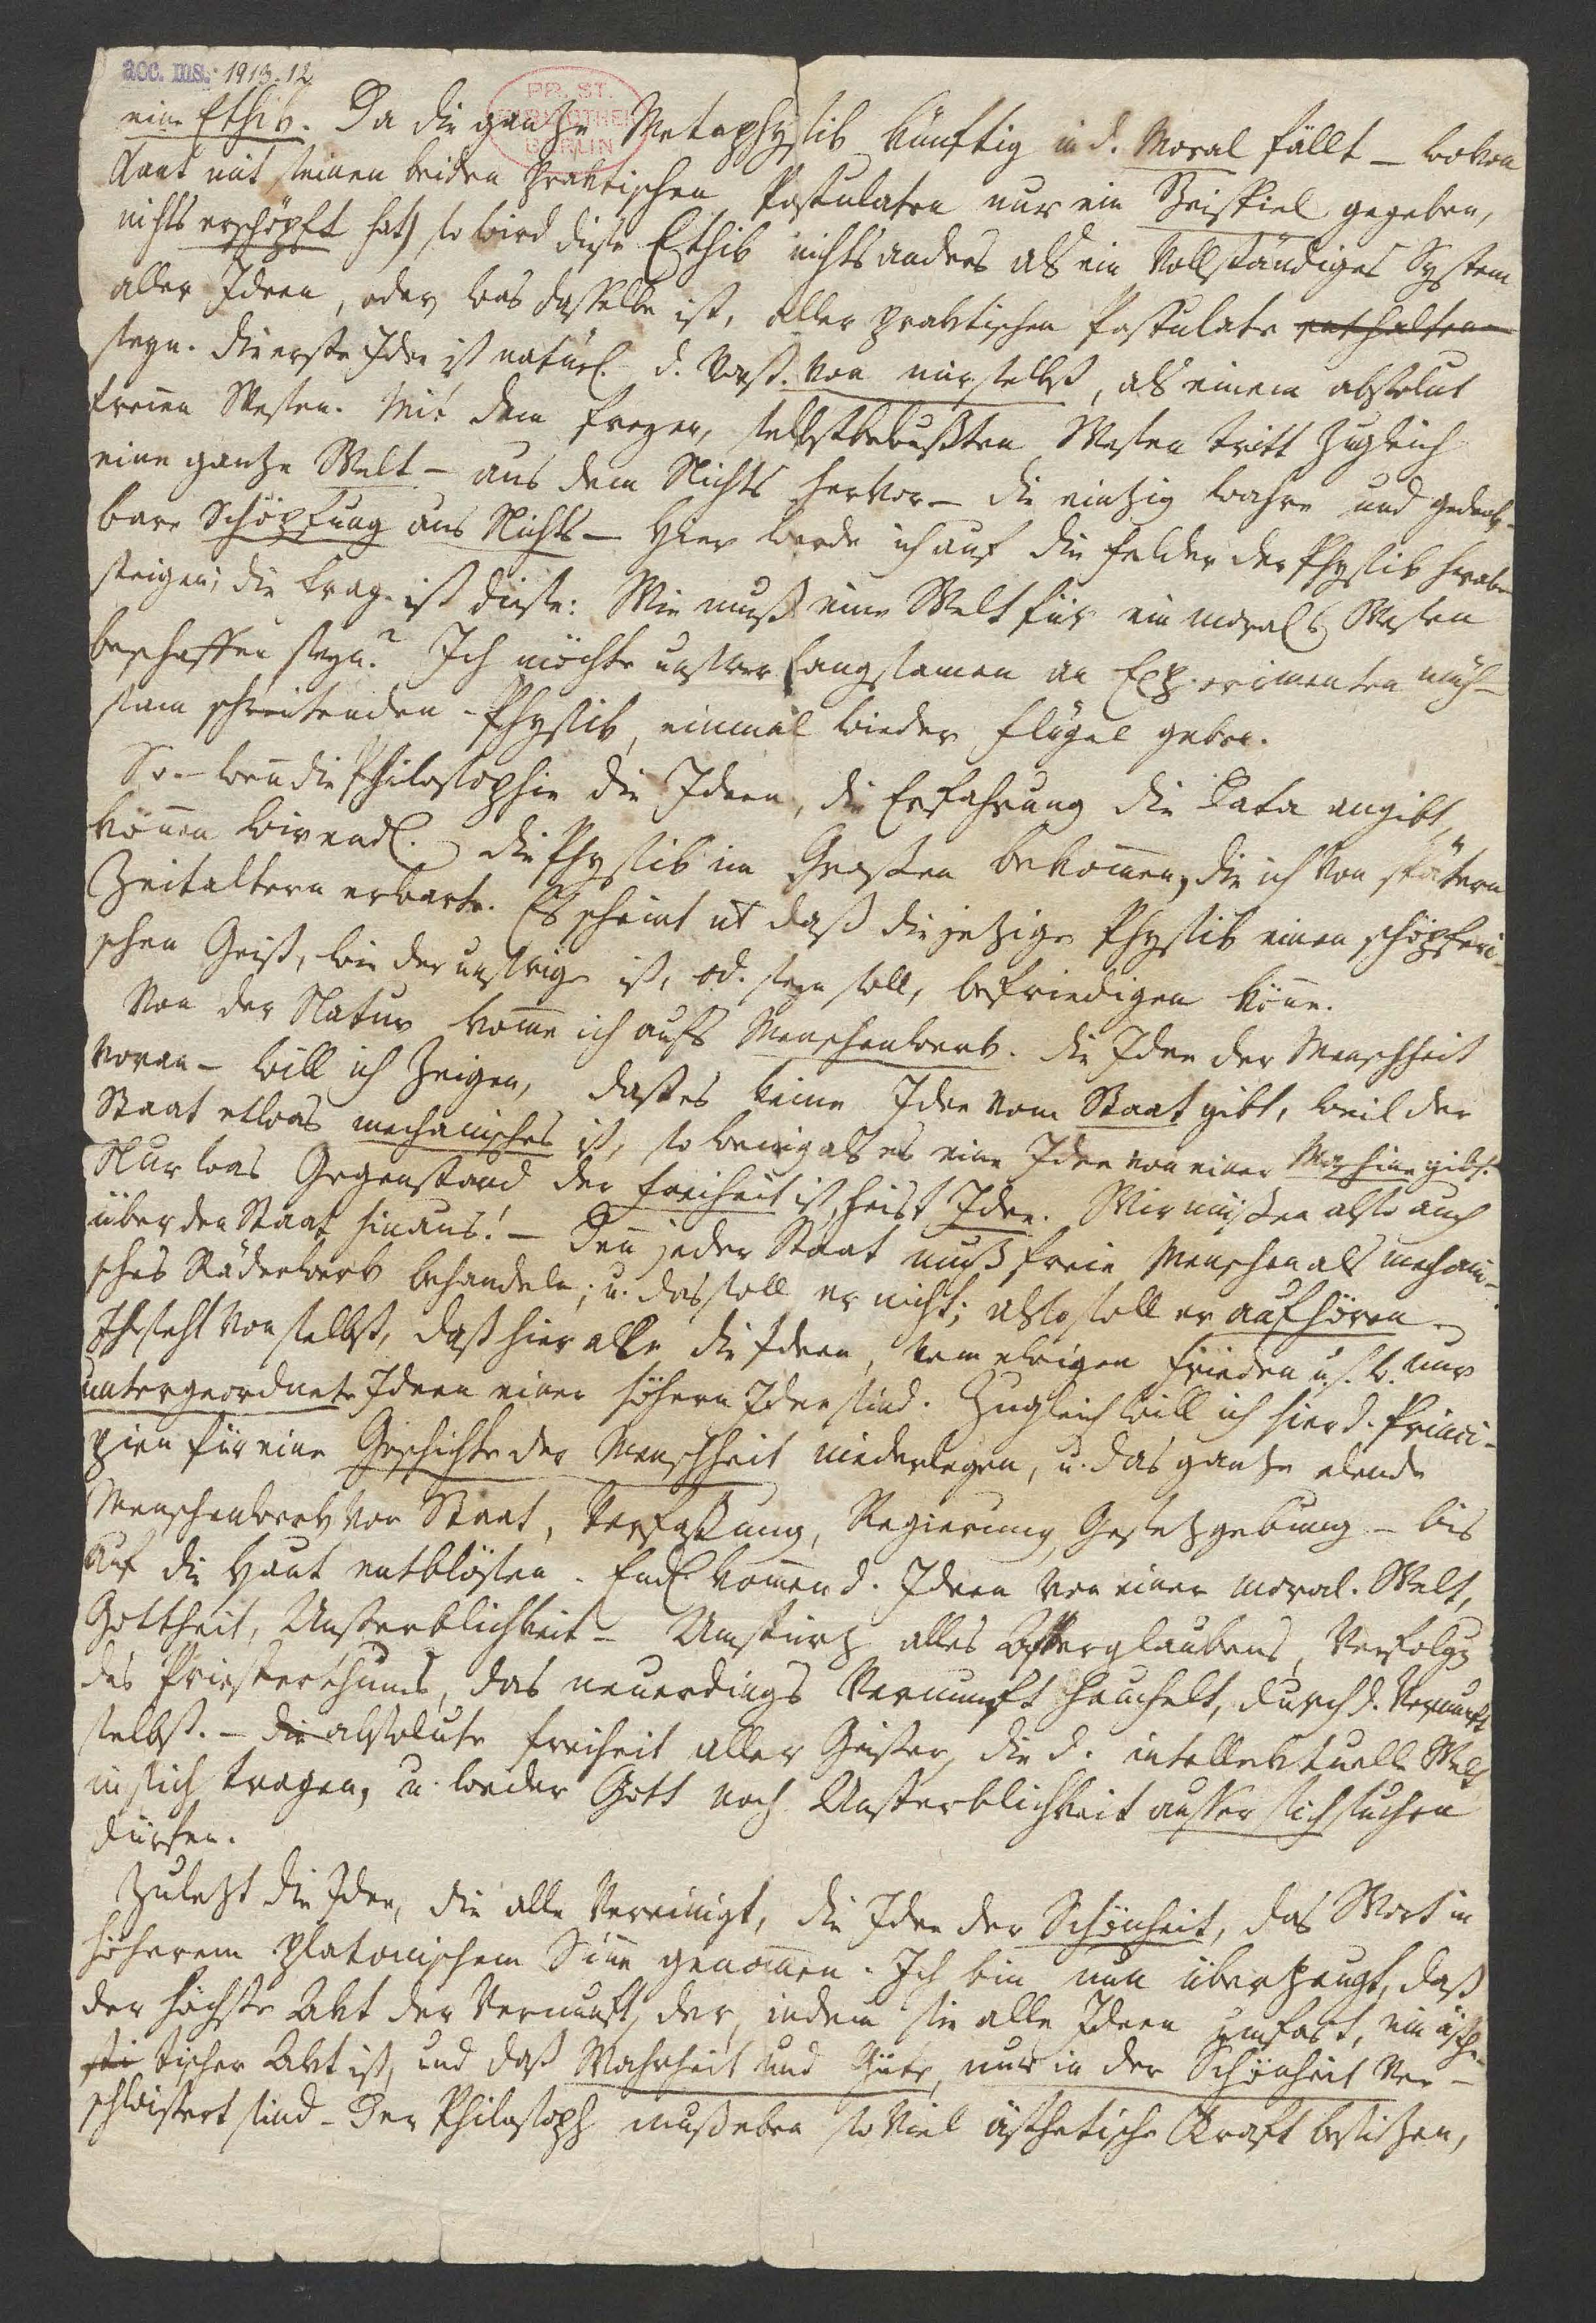 acc. ms. 1913.12
PR. ST.
BIBLIOTHEK
BERLIN
eine Ethik. Da die ganze Metaphysik künftig in d. Moral fällt – wovon
Kant mit seinen beiden praktischen Postulaten nur ein Beispiel gegeben,
nichts erschöpft hat) so wird diese Ethik nichts anders als ein vollständiges System
aller Ideen, oder was dasselbe ist, aller praktischen Postulate enthalten
seyn. die erste Idee ist natürl. d. Vorst. von mir selbst, als einem absolut
freien Wesen. Mit dem freyen, selbstbewußten Wesen tritt zugleich
eine ganze Welt – aus dem Nichts hervor – die einzig wahre und gedenk-
bare Schöpfung aus Nichts – Hier werde ich auf die Felder der Physik herab-
steigen; die Frage ist diese: Wie muß eine Welt für ein moral. Wesen
beschaffen seyn? Ich möchte unsrer langsamen an Experimenten müh-
sam schreitenden – Physik, einmal wieder Flügel geben.
So – wenn die Philosophie die Ideen, die Erfahrung die Data angibt,
können wir endl. die Physik im Großen bekommen, die ich von spätern
Zeitaltern erwarte. Es scheint nt daß die jetzige Physik einen schöpferi-
schen Geist, wie der unsrige ist, od. seyn soll, befriedigen könne.
Von der Natur komme ich aufs Menschenwerk. die Idee der Menschheit
voran – will ich zeigen, daß es keine Idee vom Staat gibt, weil der
Staat etwas mechanisches ist, so wenig als es eine Idee von einer Maschine gibt.
Nur was Gegenstand der Freiheit ist, heist Idee. Wir müßen also auch
über den Staat hinaus! – Denn jeder Staat muß freie Menschen als mechani-
sches Räderwerk behandeln; u. das soll er nicht; also soll er aufhören.
Ihr seht von selbst, daß hier alle die Ideen, vom ewigen Frieden u.s.w. nur
untergeordnete Ideen einer höhern Idee sind. Zugleich will ich hier d. Princi-
pien für eine Geschichte der Menschheit niederlegen, u. das ganze elende
Menschenwerk von Staat, Verfaßung, Regierung, Gesetzgebung – bis
auf die Haut entblösen. Endl. kommen d. Ideen von einer moral. Welt,
Gottheit, Unsterblichkeit – Umsturz alles Afterglaubens, Verfolgg
des Priesterthums, das neuerdings Vernunft heuchelt, durch d. Vernunft
selbst. – die absolute Freiheit aller Geister, die d. intellektuelle Welt
in sich tragen, u. weder Gott noch Unsterblichkeit ausser sich suchen
dürfen.
Zuletzt die Idee, die alle vereinigt, die Idee der Schönheit, das Wort in
höherem platonischem Sinne genommen. Ich bin nun überzeugt, daß
der höchste Akt der Vernunft, der, indem sie alle Ideen umfast, ein ästhe-
sti tischer Akt ist, und daß Wahrheit und Güte, nur in der Schönheit ver-
schwistert sind – Der Philosoph muß eben so viel ästhetische Kraft besitzen,